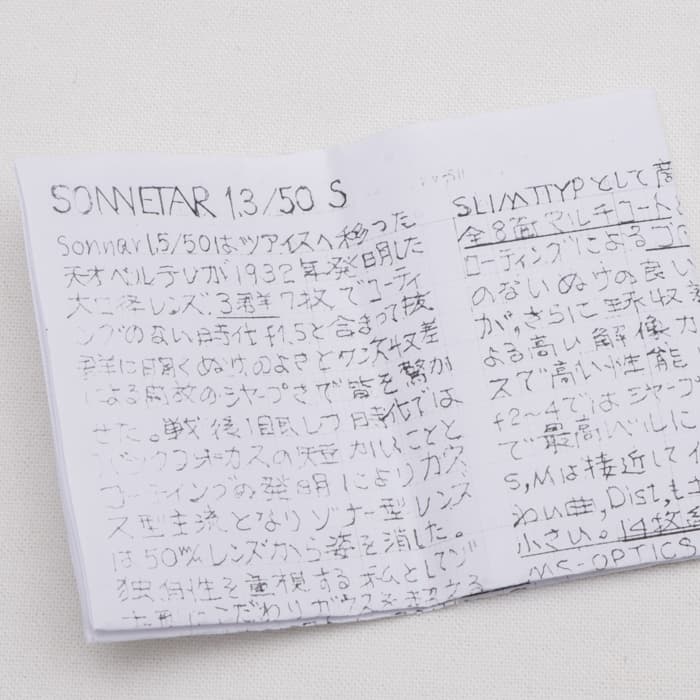 SONNETAR 1.3/50 S
Sonnar1.5/50はツアイスへ移った
天才ベルテレが1932年発明した
大口径レンズ.3群7枚でコーティ
ングのない時代f1.5と含まって抜
群に明るくぬけのよさとワンズ収差
による開放のシャープさで皆を驚か
せた。戦後1眼レフ時代では
バックフォーカスの短かいことと
コーティングの発明によりガウ
ス型主流となりゾナー型レンズ
は50mmレンズから姿を消した。
独自性を重視する私としてゾ
にこだわりガウスを
SLIMTTYPとして高
全8面マルチコート
コーティングによるゴ
のないぬけの良い
が,さらに 収差
よる高い解像力
スで高い性能
f2~4ではシャープ
で最高レベルに
S,Mは接近してイ
わい曲,Dist,も
小さい。14枚
MS-OPTICS